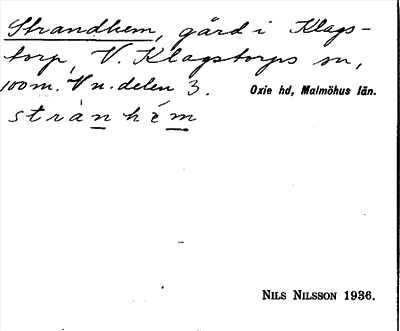 Strandhem, gård i Klags-
torp, V. Klagstorps sn,
100 m. V n. delen 3. Oxie hd, Malmöhus län.
strànhém
NILS NILSSON 1936.